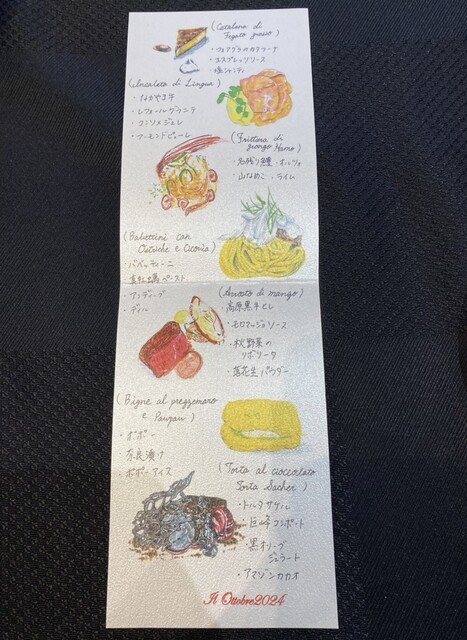 (Catalana di
Fegato grasso)
・フォアグラのカタラーナ
・エスプレッソソース
・塩シャンティ
(Insalata di Lingua)
・なかやま牛
・レフォールグラニテ
・コンソメジュレ
・アーモンドピューレ
(Frittura di
grongo Narro)
・名残り鱧
・山なめこ、ライム
(Babettini con
Ostriche e Cicoria)
・バベッティーニ
・真牡蠣ペースト
・アンディーブ
・ディル
(Arrosto di manzo)
・高原黒牛ヒレ
・モスタルダソース
・秋野菜の
リボリータ
・落花生パウダー
(Bigne al prezzemoro
e Pawpaw)
・ポポー
奈良漬け
・ポポーアイス
(Torta al cioccolato
Torta Sacher)
・トルタサケル
・巨峰コンポート
・黒オリーブ
ジェラート
・アマゾンカカオ
Il Ottobre2024